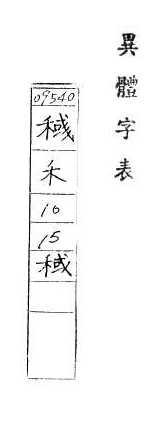 異體字表
09540
稢
禾
10
15
䅁